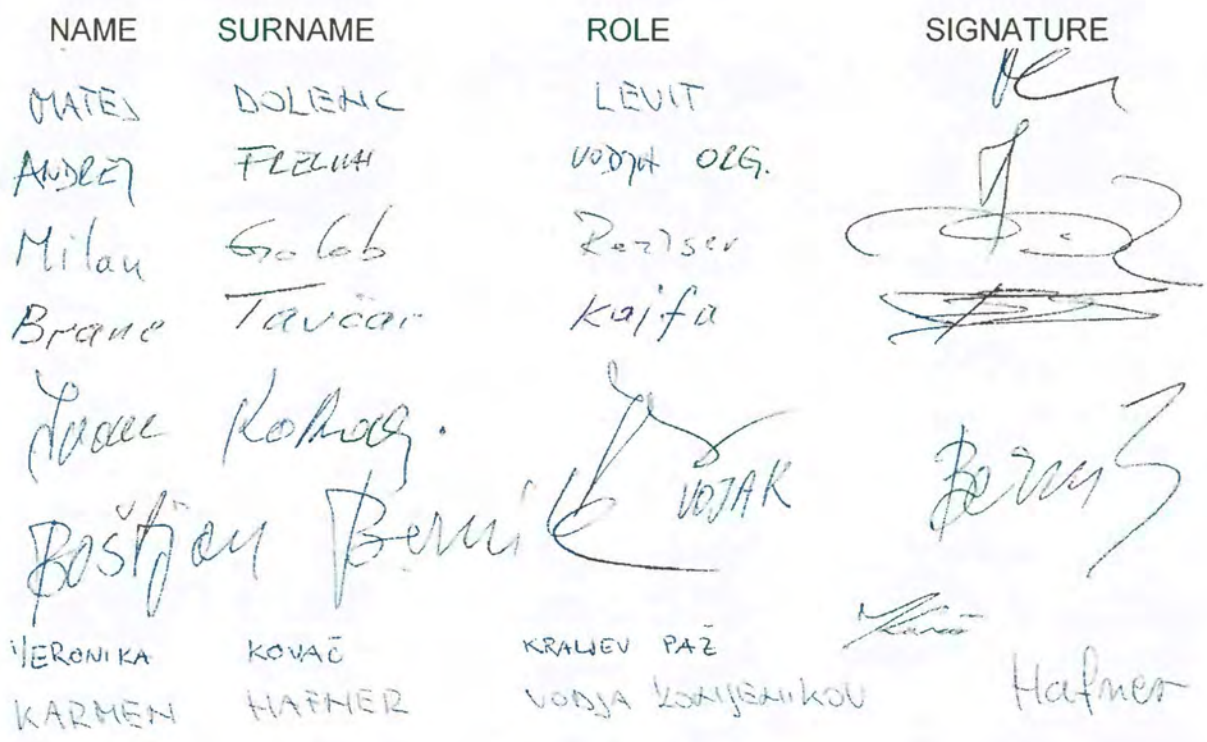 NAME SURNAME ROLE SIGNATURE
MATEJ DOLENC LEVIT
ANDREJ VODJA ORG.
Milan Golob Režiser
Brane Tavčar Kajfa
Boštjan Bernik VOJAK
VERONIKA KOVAČ KRALJEV PAŽ
KARMEN HAFNER VODJA KONJENIKOV Hafner